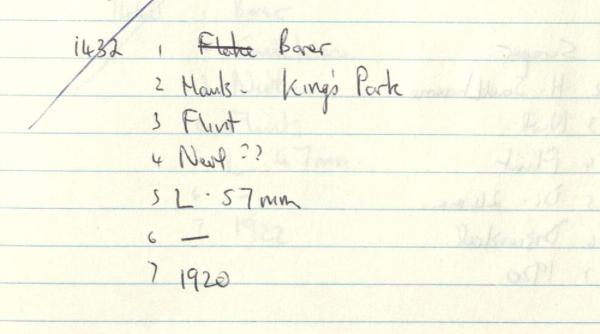 i432 1 Flake Borer
2 Hants - King's Park
3 Flint
4 Neol ??
5 L. 57mm
6 —
7 1920